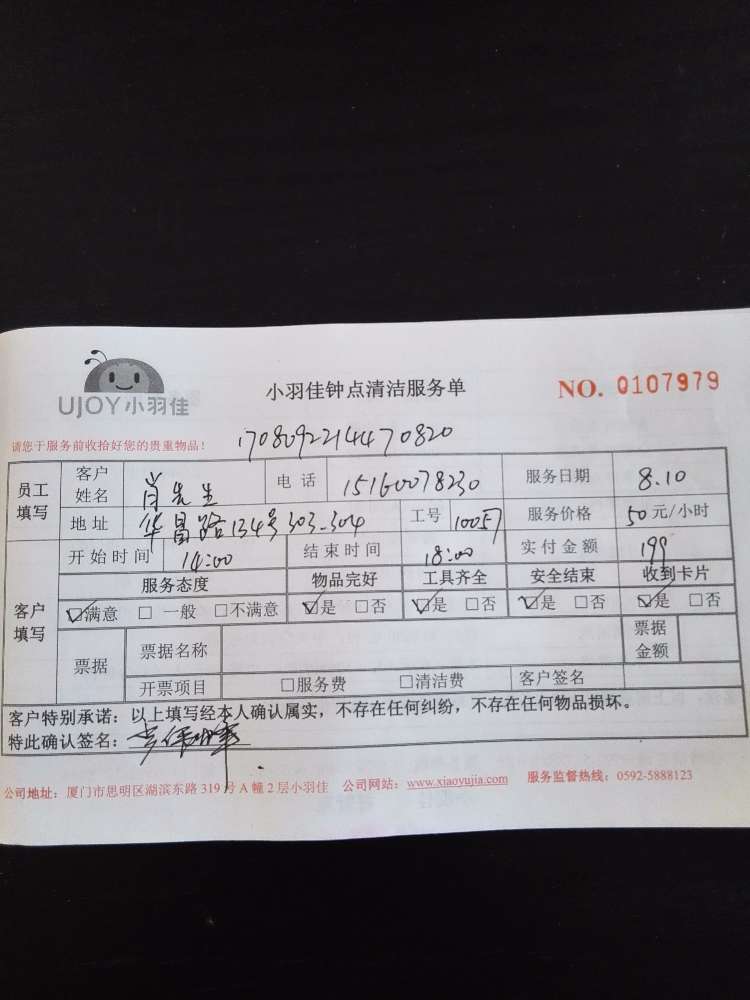 UJOY小羽佳
小羽佳钟点清洁服务单
NO. 0107979
请您于服务前收拾好您的贵重物品!
1708092214470820
员工填写 客户姓名 肖先生 电话 15160078230 服务日期 8.10
地址 华昌路134号303-304 工号 10057 服务价格 50元/小时
客户填写 开始时间 14:00 结束时间 18:00 实付金额 199
服务态度 物品完好 工具齐全 安全结束 收到卡片
☑满意 □一般 □不满意 ☑是 □否 ☑是 □否 ☑是 □否 ☑是 □否
票据 票据名称 票据金额
开票项目 □服务费 □清洁费 客户签名
客户特别承诺:以上填写经本人确认属实,不存在任何纠纷,不存在任何物品损坏。
特此确认签名:
公司地址:厦门市思明区湖滨东路319号A幢2层小羽佳 公司网站:www.xiaoyujia.com 服务监督热线:0592-5888123